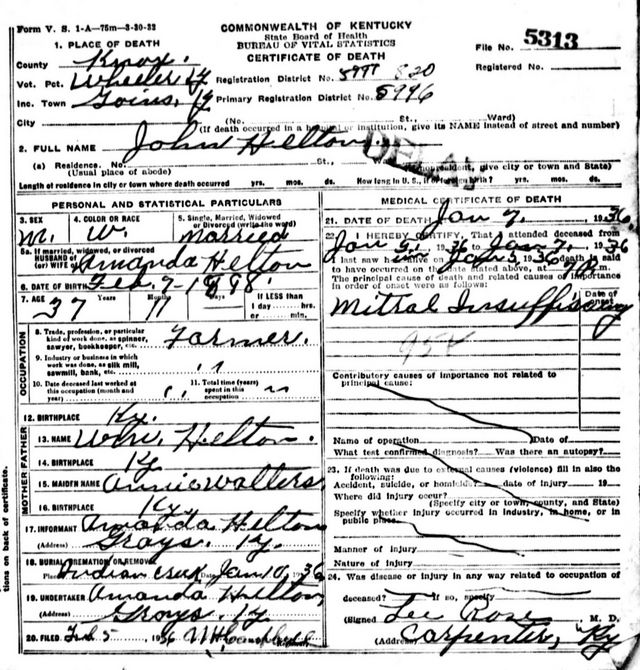 Form V. S. 1-A—75m—3-30-33
COMMONWEALTH OF KENTUCKY
State Board of Health
BUREAU OF VITAL STATISTICS
CERTIFICATE OF DEATH
File No. 5313
Registered No.
1. PLACE OF DEATH
County Knox
Vot. Pct. Wheeler Ky Registration District No. 820
Inc. Town Goins, Ky Primary Registration District No. 5996
City (No. St., Ward)
(If death occurred in a hospital or institution, give its NAME instead of street and number)
2. FULL NAME John Helton
DELAY
(a) Residence. No. St.,
(Usual place of abode) (If nonresident, give city or town and State)
Length of residence in city or town where death occurred yrs. mos. ds. How long in U. S., if of foreign birth? yrs. mos. ds.
PERSONAL AND STATISTICAL PARTICULARS
3. SEX 4. COLOR OR RACE 5. Single, Married, Widowed
or Divorced (write the word)
M. W. Married
5a. If married, widowed, or divorced
HUSBAND of
(or) WIFE of Amanda Helton
6. DATE OF BIRTH Feb. 7-1898.
7. AGE Years Months Days If LESS than
1 day, hrs.
or min.
37 11
OCCUPATION
8. Trade, profession, or particular
kind of work done, as spinner,
sawyer, bookkeeper, etc. Farmer.
9. Industry or business in which
work was done, as silk mill,
sawmill, bank, etc. "
10. Date deceased last worked at
this occupation (month and
year) 11. Total time (years)
spent in this
occupation
12. BIRTHPLACE Ky.
FATHER
13. NAME Wm. Helton.
14. BIRTHPLACE Ky
MOTHER
15. MAIDEN NAME Annie Walters
16. BIRTHPLACE Ky.
17. INFORMANT Amanda Helton
(Address) Grays. Ky.
18. BURIAL, CREMATION OR REMOVAL
Place Indian Creek Date Jan 10, 1936
19. UNDERTAKER Amanda Helton
(Address) Grays. Ky
20. FILED Feb 5 1936
MEDICAL CERTIFICATE OF DEATH
21. DATE OF DEATH Jan 7. 1936
22. I HEREBY CERTIFY, That I attended deceased from
Jan 1936 to Jan 7. 1936
I last saw h alive on Jan 5 1936 death is said
to have occurred on the date stated above, at m.
The principal cause of death and related causes of importance
in order of onset were as follows:
Date of
onset
Mitral Insufficiency
Contributory causes of importance not related to
principal cause:
Name of operation Date of
What test confirmed diagnosis? Was there an autopsy?
23. If death was due to external causes (violence) fill in also the
following:
Accident, suicide, or homicide? date of injury 19
Where did injury occur?
(Specify city or town, county, and State)
Specify whether injury occurred in industry, in home, or in
public place.
Manner of injury
Nature of injury
24. Was disease or injury in any way related to occupation of
deceased? If so, specify
(Signed Lee Rose M. D.
(Address) Carpenter, Ky
tions on back of certificate.